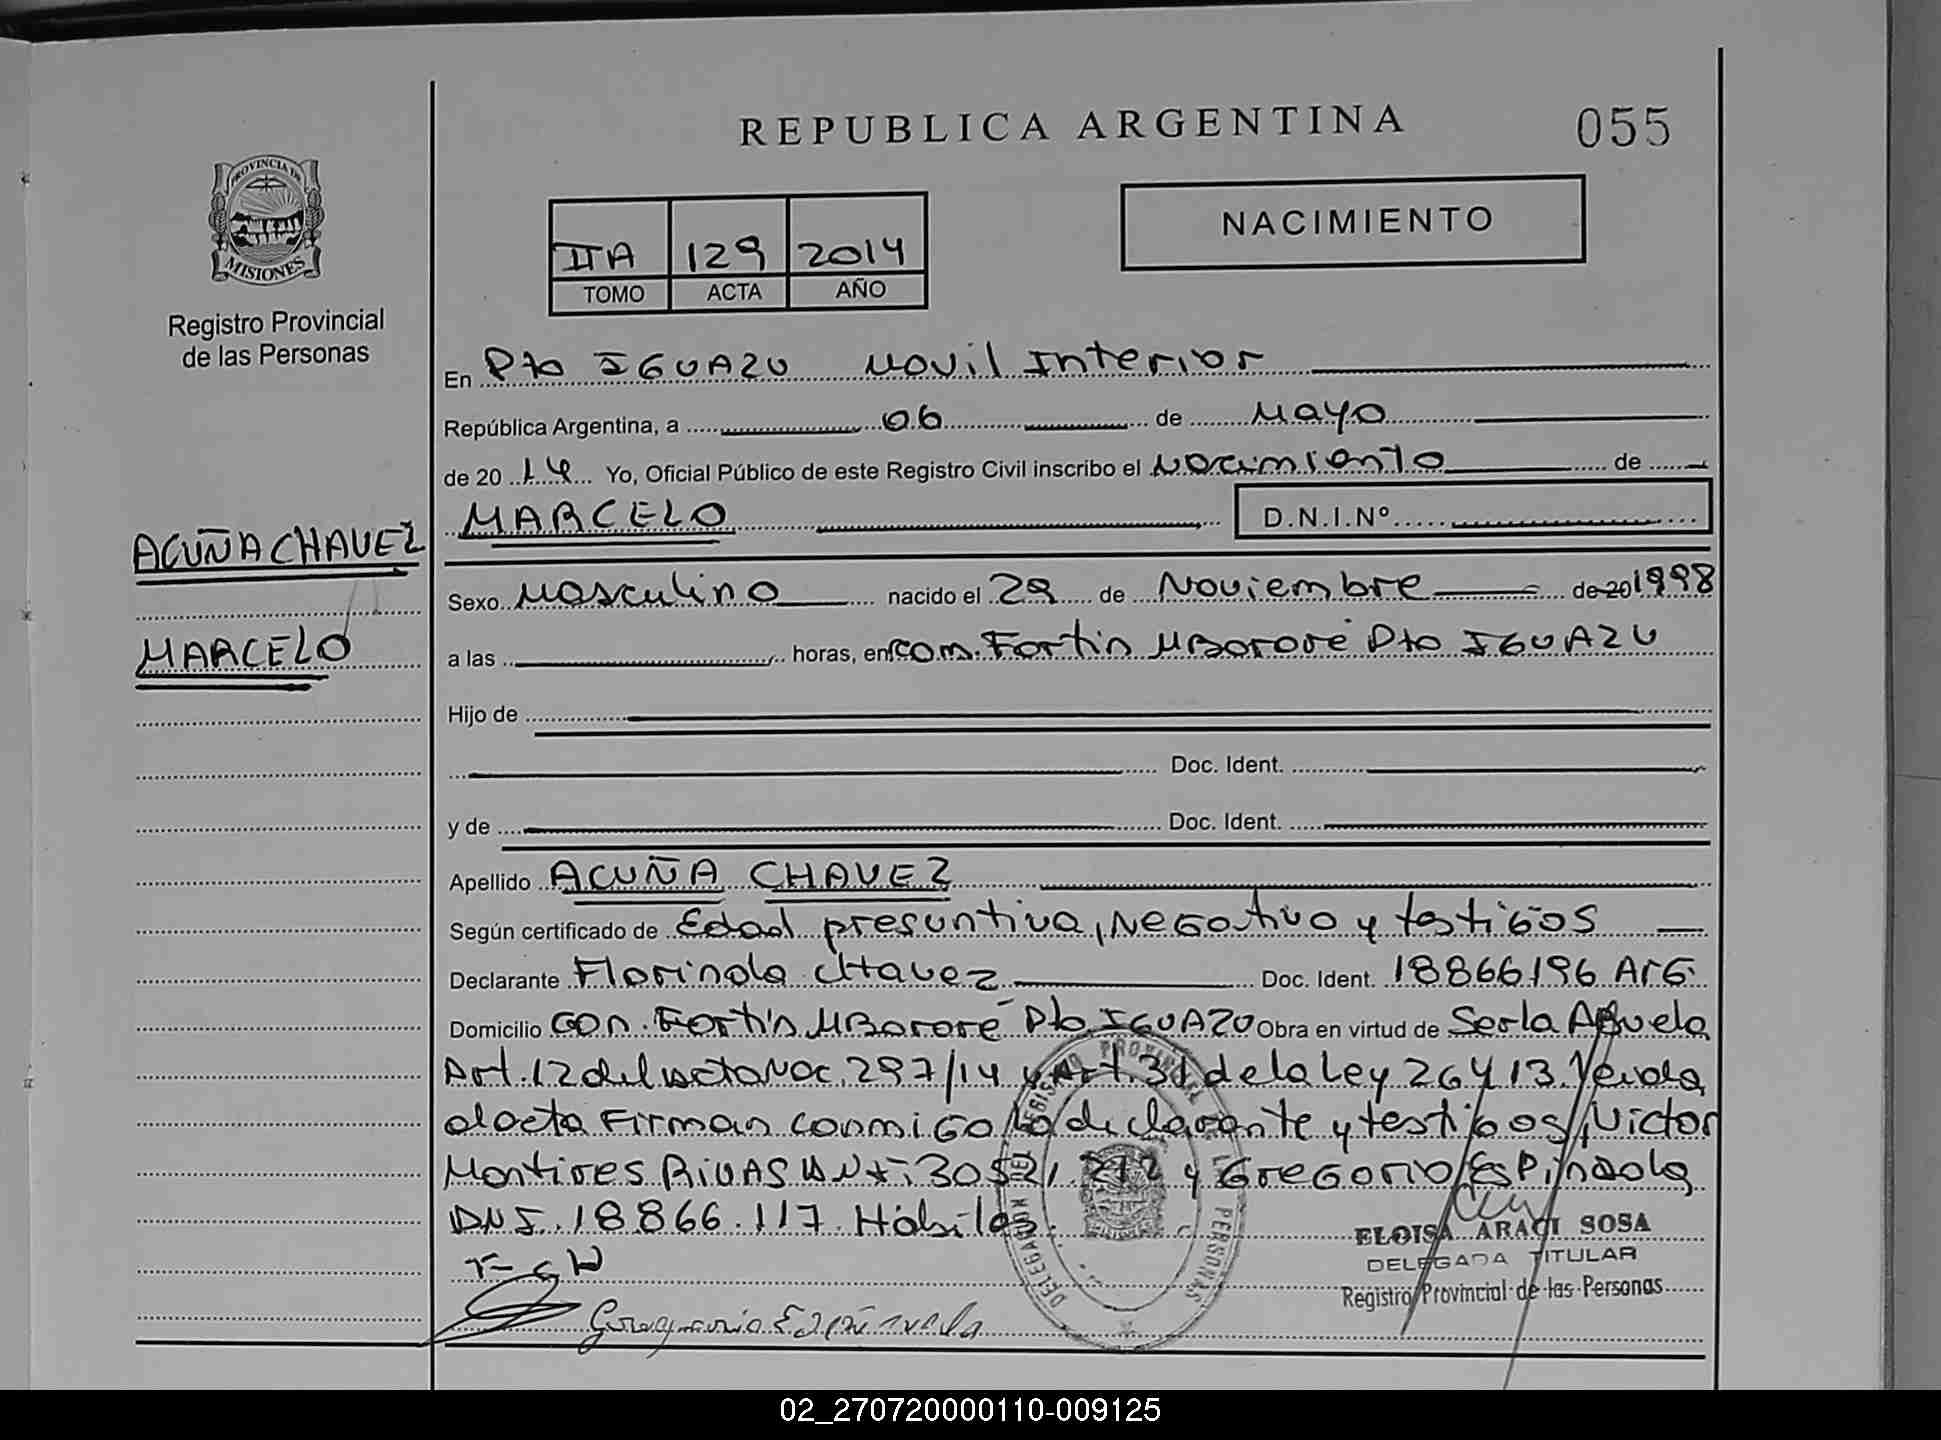 REPUBLICA ARGENTINA
055
PROVINCIA DE
MISIONES
Registro Provincial
de las Personas
NACIMIENTO
IIA 129 2014
TOMO ACTA AÑO
En Pto IGUAZU Movil Interior
República Argentina, a 06 de Mayo
de 2014 Yo, Oficial Público de este Registro Civil inscribo el Nacimiento de
MARCELO D.N.I.Nº
ACUÑA CHAVEZ
MARCELO
Sexo Masculino nacido el 29 de Noviembre de 20 1998
a las horas, en com. Fortin MBororé Pto IGUAZU
Hijo de
Doc. Ident.
y de Doc. Ident.
Apellido ACUÑA CHAVEZ
Según certificado de Edad presuntiva, Negativo y testigos
Declarante Florinda Chavez Doc. Ident. 18866196 ARG.
Domicilio Com. Fortin MBororé Pto IGUAZU Obra en virtud de Ser la Abuela
Art. 12 del 297/14 y Art. 31 de la Ley 26413. Leida
el acta Firman conmigo la declarante y testigos, Victor
RIVAS 30521.212 y Gregorio Espindola
DNI. 18.866.117. Hábiles.
ELOISA ARACI SOSA
DELEGADA TITULAR
Registro Provincial de las Personas
DELEGACION DEL REGISTRO PROVINCIAL DE LAS PERSONAS
02_270720000110-009125